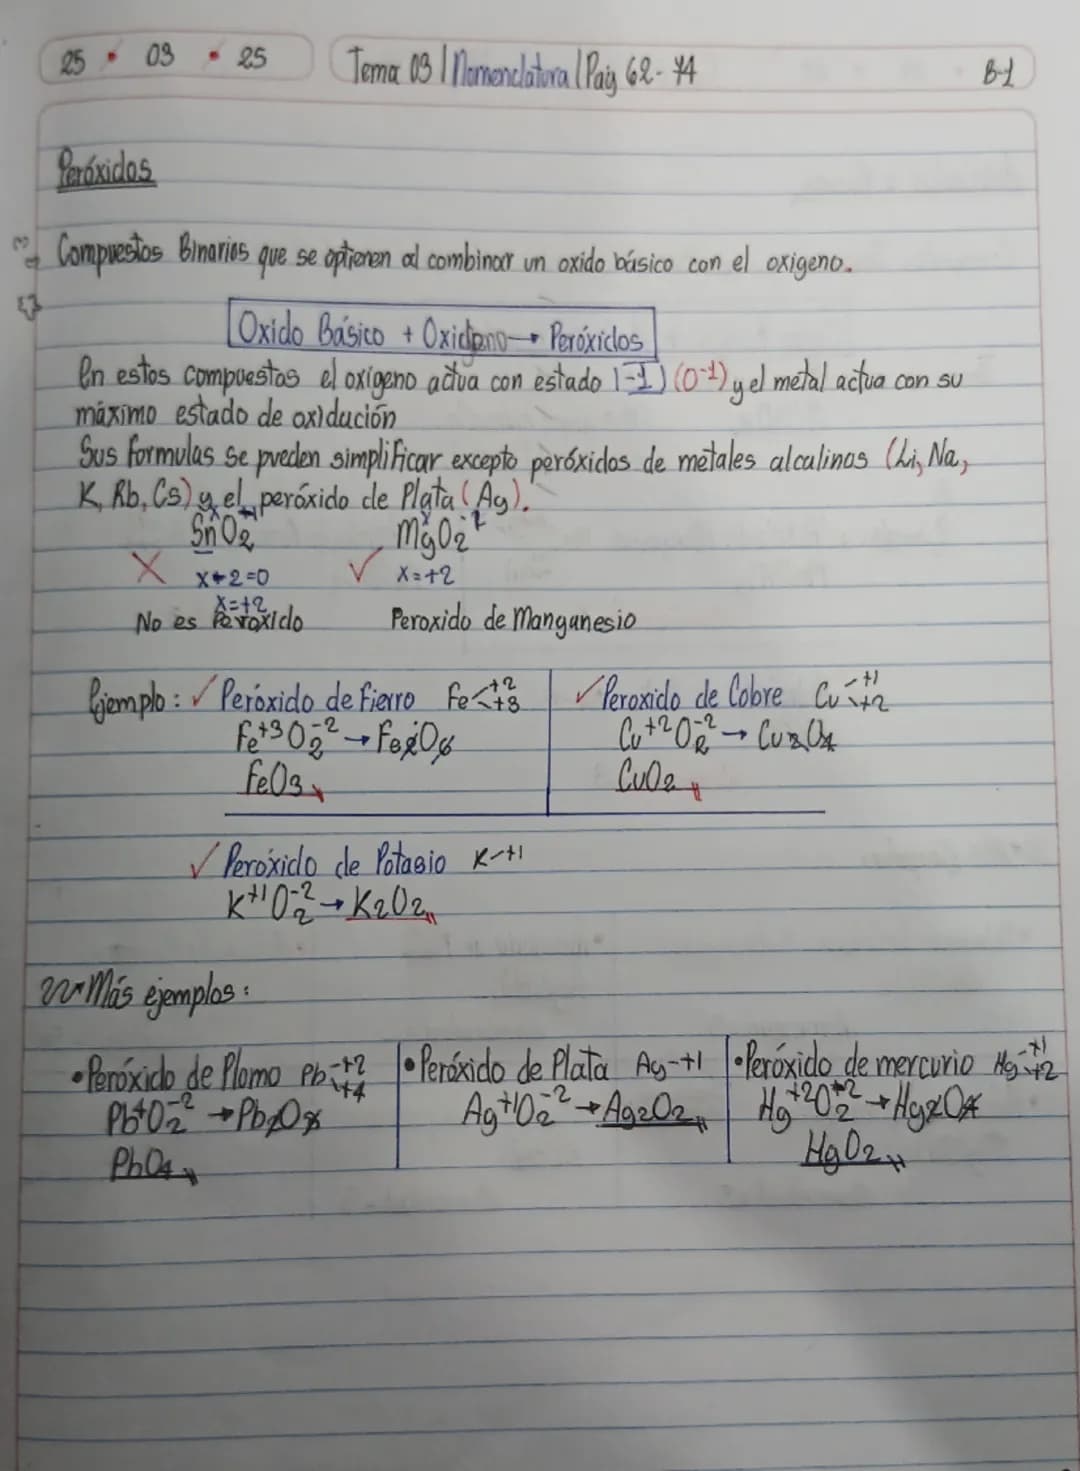 25 • 03 • 25 Tema 03 | Nomenclatura | Pág 62-74 B-1
Peróxidos
Compuestos Binarios que se optienen al combinar un oxido básico con el oxigeno.
Oxido Básico + Oxigeno → Peróxidos
En estos compuestos el oxigeno actua con estado (-1) (O⁻¹) y el metal actua con su
máximo estado de oxidución
Sus formulas se pueden simplificar excepto peróxidos de metales alcalinos (Li, Na,
K, Rb, Cs) y el peróxido de Plata (Ag).
SnO₂ MgO₂
X x+2=0 ✓ x=+2
x=+2
No es Peroxido Peroxido de Manganesio
Ejemplo: ✓ Peróxido de Fierro Fe +2 +3 ✓ Peroxido de Cobre Cu +1 +2
Fe⁺³O₂⁻² → Fe₂O₆ Cu⁺²O₂⁻² → Cu₂O₄
FeO₃ CuO₂
✓ Peróxido de Potasio K +1
K⁺¹O₂⁻² → K₂O₂
Más ejemplos:
• Peróxido de Plomo Pb +2 +4 • Peróxido de Plata Ag +1 • Peróxido de mercurio Hg +1 +2
Pb⁺O₂⁻² → Pb₂O₈ Ag⁺¹O₂⁻² → Ag₂O₂ Hg⁺²O₂⁻² → Hg₂O₄
PbO₄ HgO₂